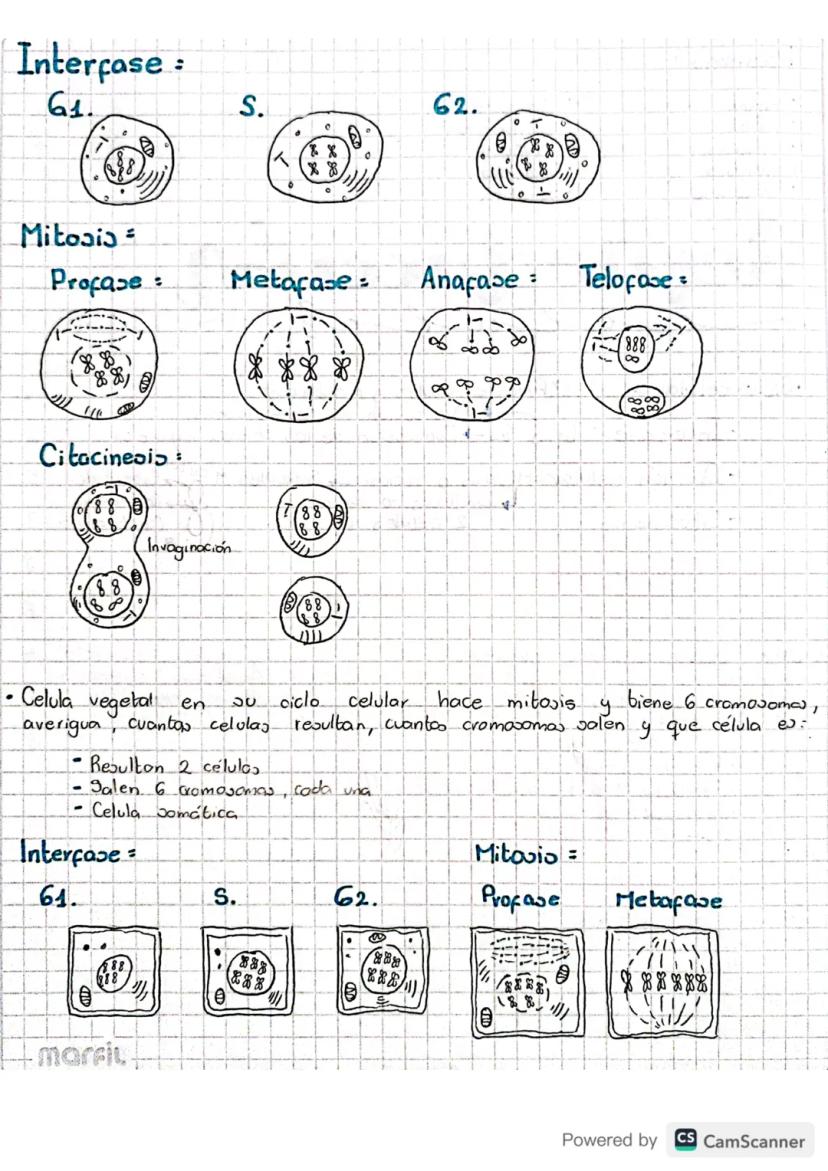 Interfase:
G1. S. G2.
Mitosis:
Profase: Metafase: Anafase: Telofase:
Citocinesis:
Invaginación
• Celula vegetal en su ciclo celular hace mitosis y biene 6 cromosomas,
averigua, cuantas celulas resultan, cuantos cromosomas salen y que célula es:
- Resultan 2 células
- Salen 6 cromosomas, cada una
- Celula somática
Interfase: Mitosis:
G1. S. G2. Profase Metafase
marfil
Powered by CS CamScanner